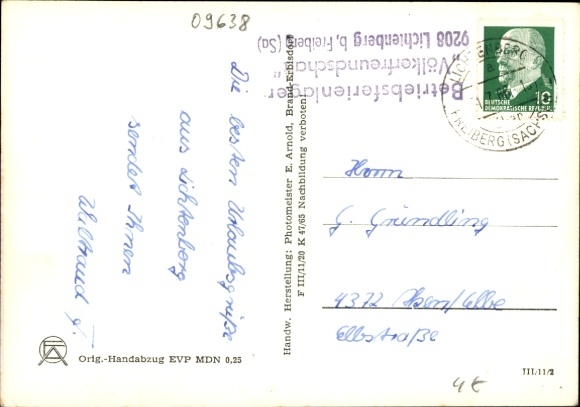 09638
Betriebsferienlager
„Völkerfreundschaft“
9208 Lichtenberg b, Freiberg (Sa)
LICHTENBERG
FREIBERG (SACHS)
DEUTSCHE
DEMOKRATISCHE REPUBLIK
10
Die besten Urlaubsgrüße
aus Lichtenberg
sendet Ihnen
Wiltraud G.
Handw. Herstellung: Photomeister E. Arnold, Brand-Erbisdorf
F III/11/20 K 47/65 Nachbildung verboten!
Herrn
G. Gründling
4372 Aken/Elbe
Elbstraße
Orig.-Handabzug EVP MDN 0,25
III/11/2
4€